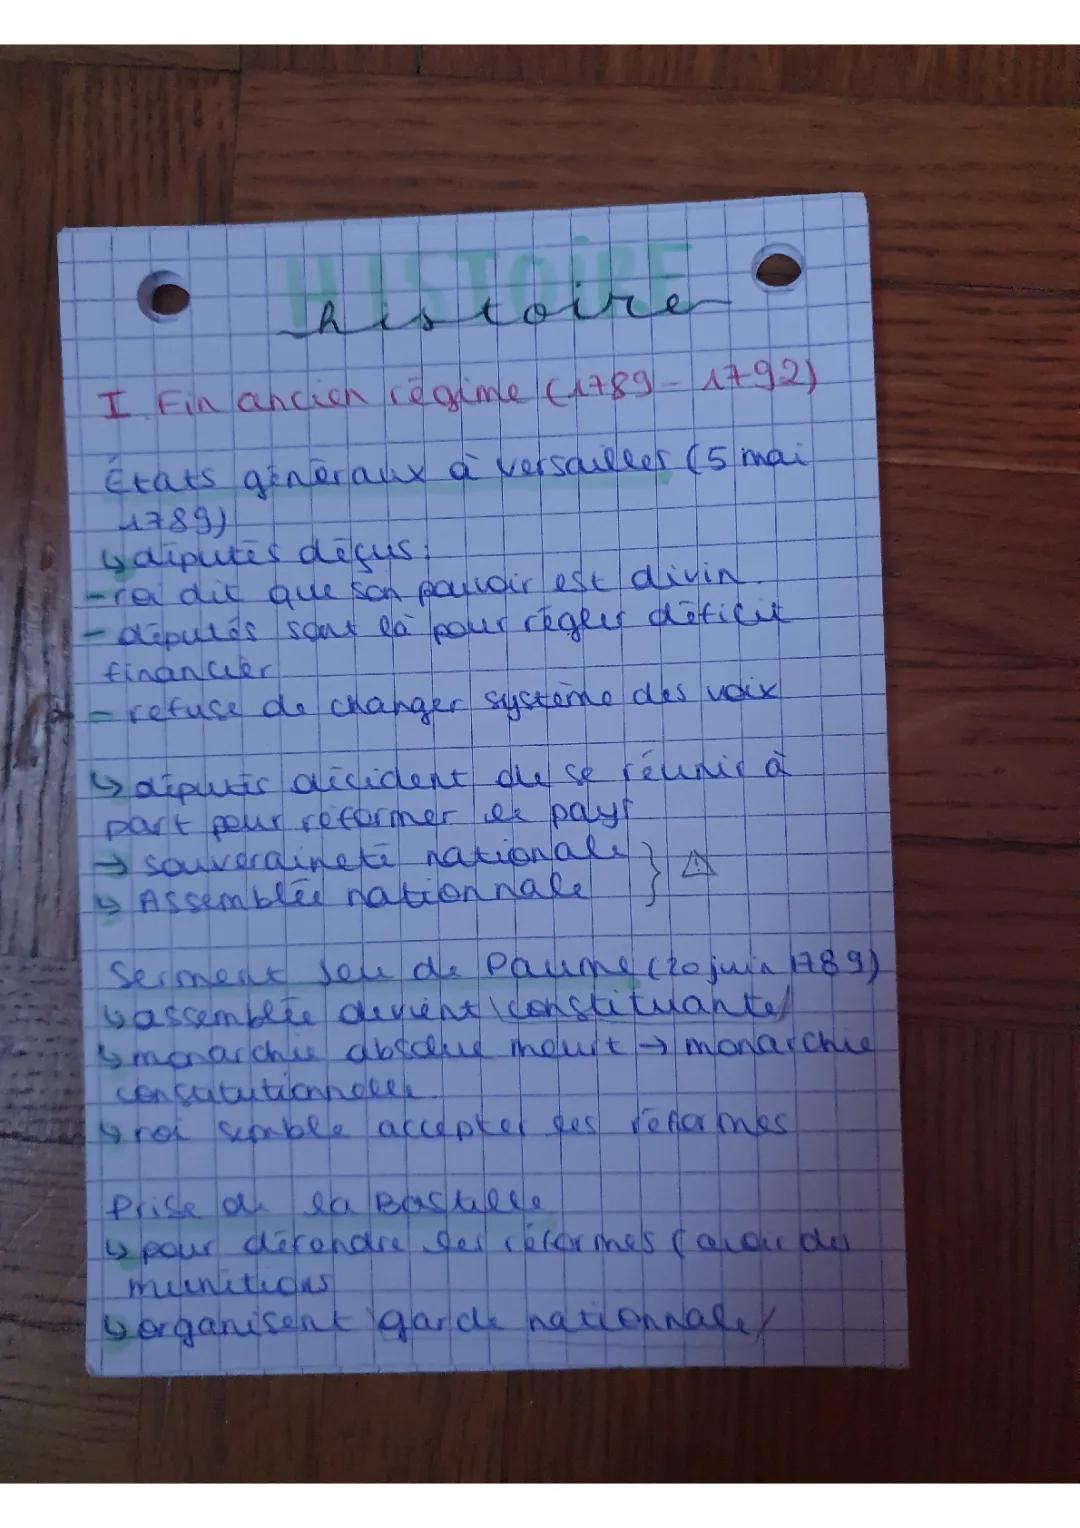 HISTOIRE
histoire
I. Fin ancien régime (1789-1792)
États généraux à Versailles (5 mai
1789)
↳ députés déçus:
- roi dit que son pouvoir est divin.
- députés sont là pour régler déficit
financier
- refuse de changer système des voix
↳ députés décident de se réunir à
part pour réformer le pays
→ souveraineté nationale } ⚠
↳ Assemblée nationnale
Serment Jeu de Paume (20 juin 1789)
↳ assemblée devient constituante
↳ monarchie absolue meurt → monarchie
constitutionnelle.
↳ roi semble accepter les réformes
Prise de la Bastille
↳ pour défendre les réformes (avoir des
munitions
↳ organisent garde nationnale